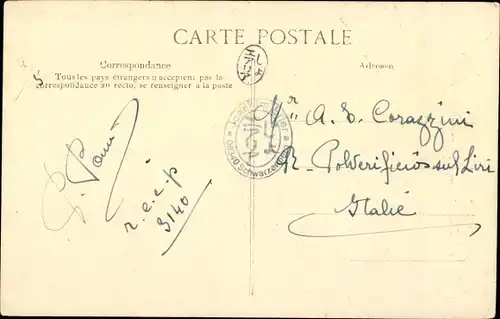 CARTE POSTALE
Correspondance
Tous les pays étrangers n'acceptent pas la
correspondance au recto, se renseigner à la poste
Adresse
5
Mr A. E. Corazzini
R. Polverificio sul Liri
Italie
r.e.c.p
3140
08340 Schwarzenberg